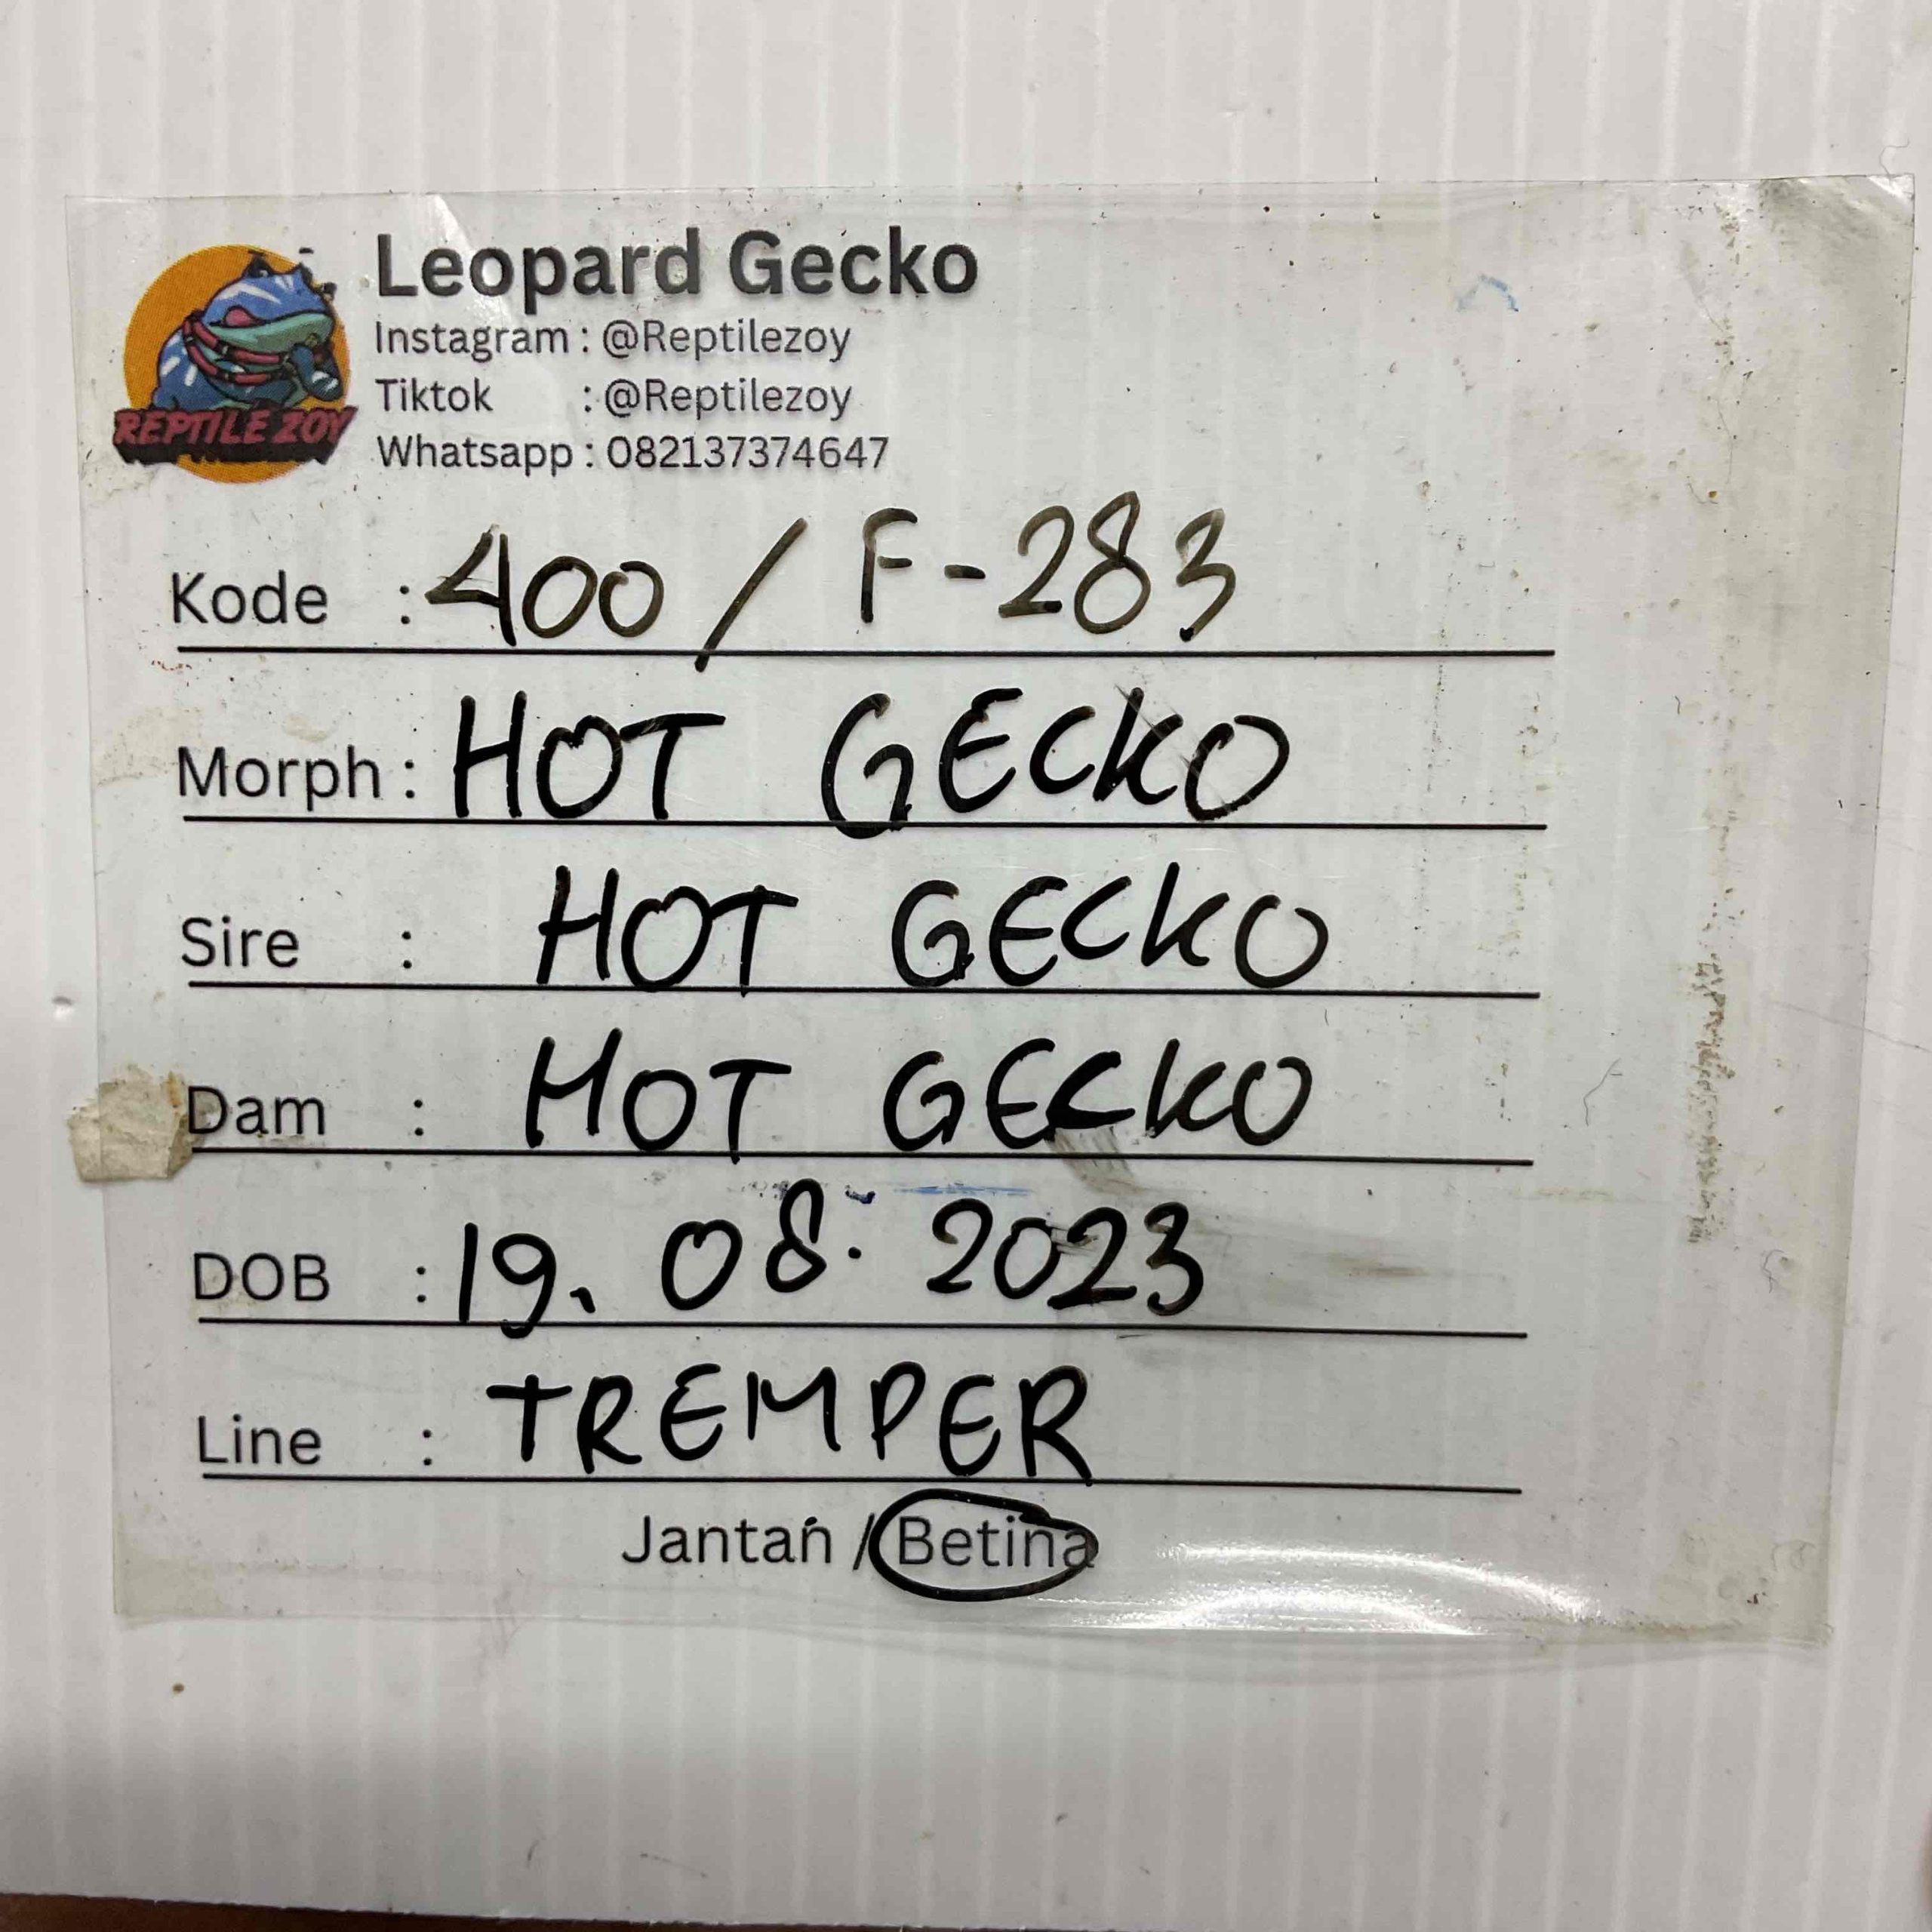 Leopard Gecko
Instagram : @Reptilezoy
Tiktok : @Reptilezoy
Whatsapp : 082137374647
REPTILE ZOY
Kode : 400 / F-283
Morph : HOT GECKO
Sire : HOT GECKO
Dam : HOT GECKO
DOB : 19. 08. 2023
Line : TREMPER
Jantan / Betina